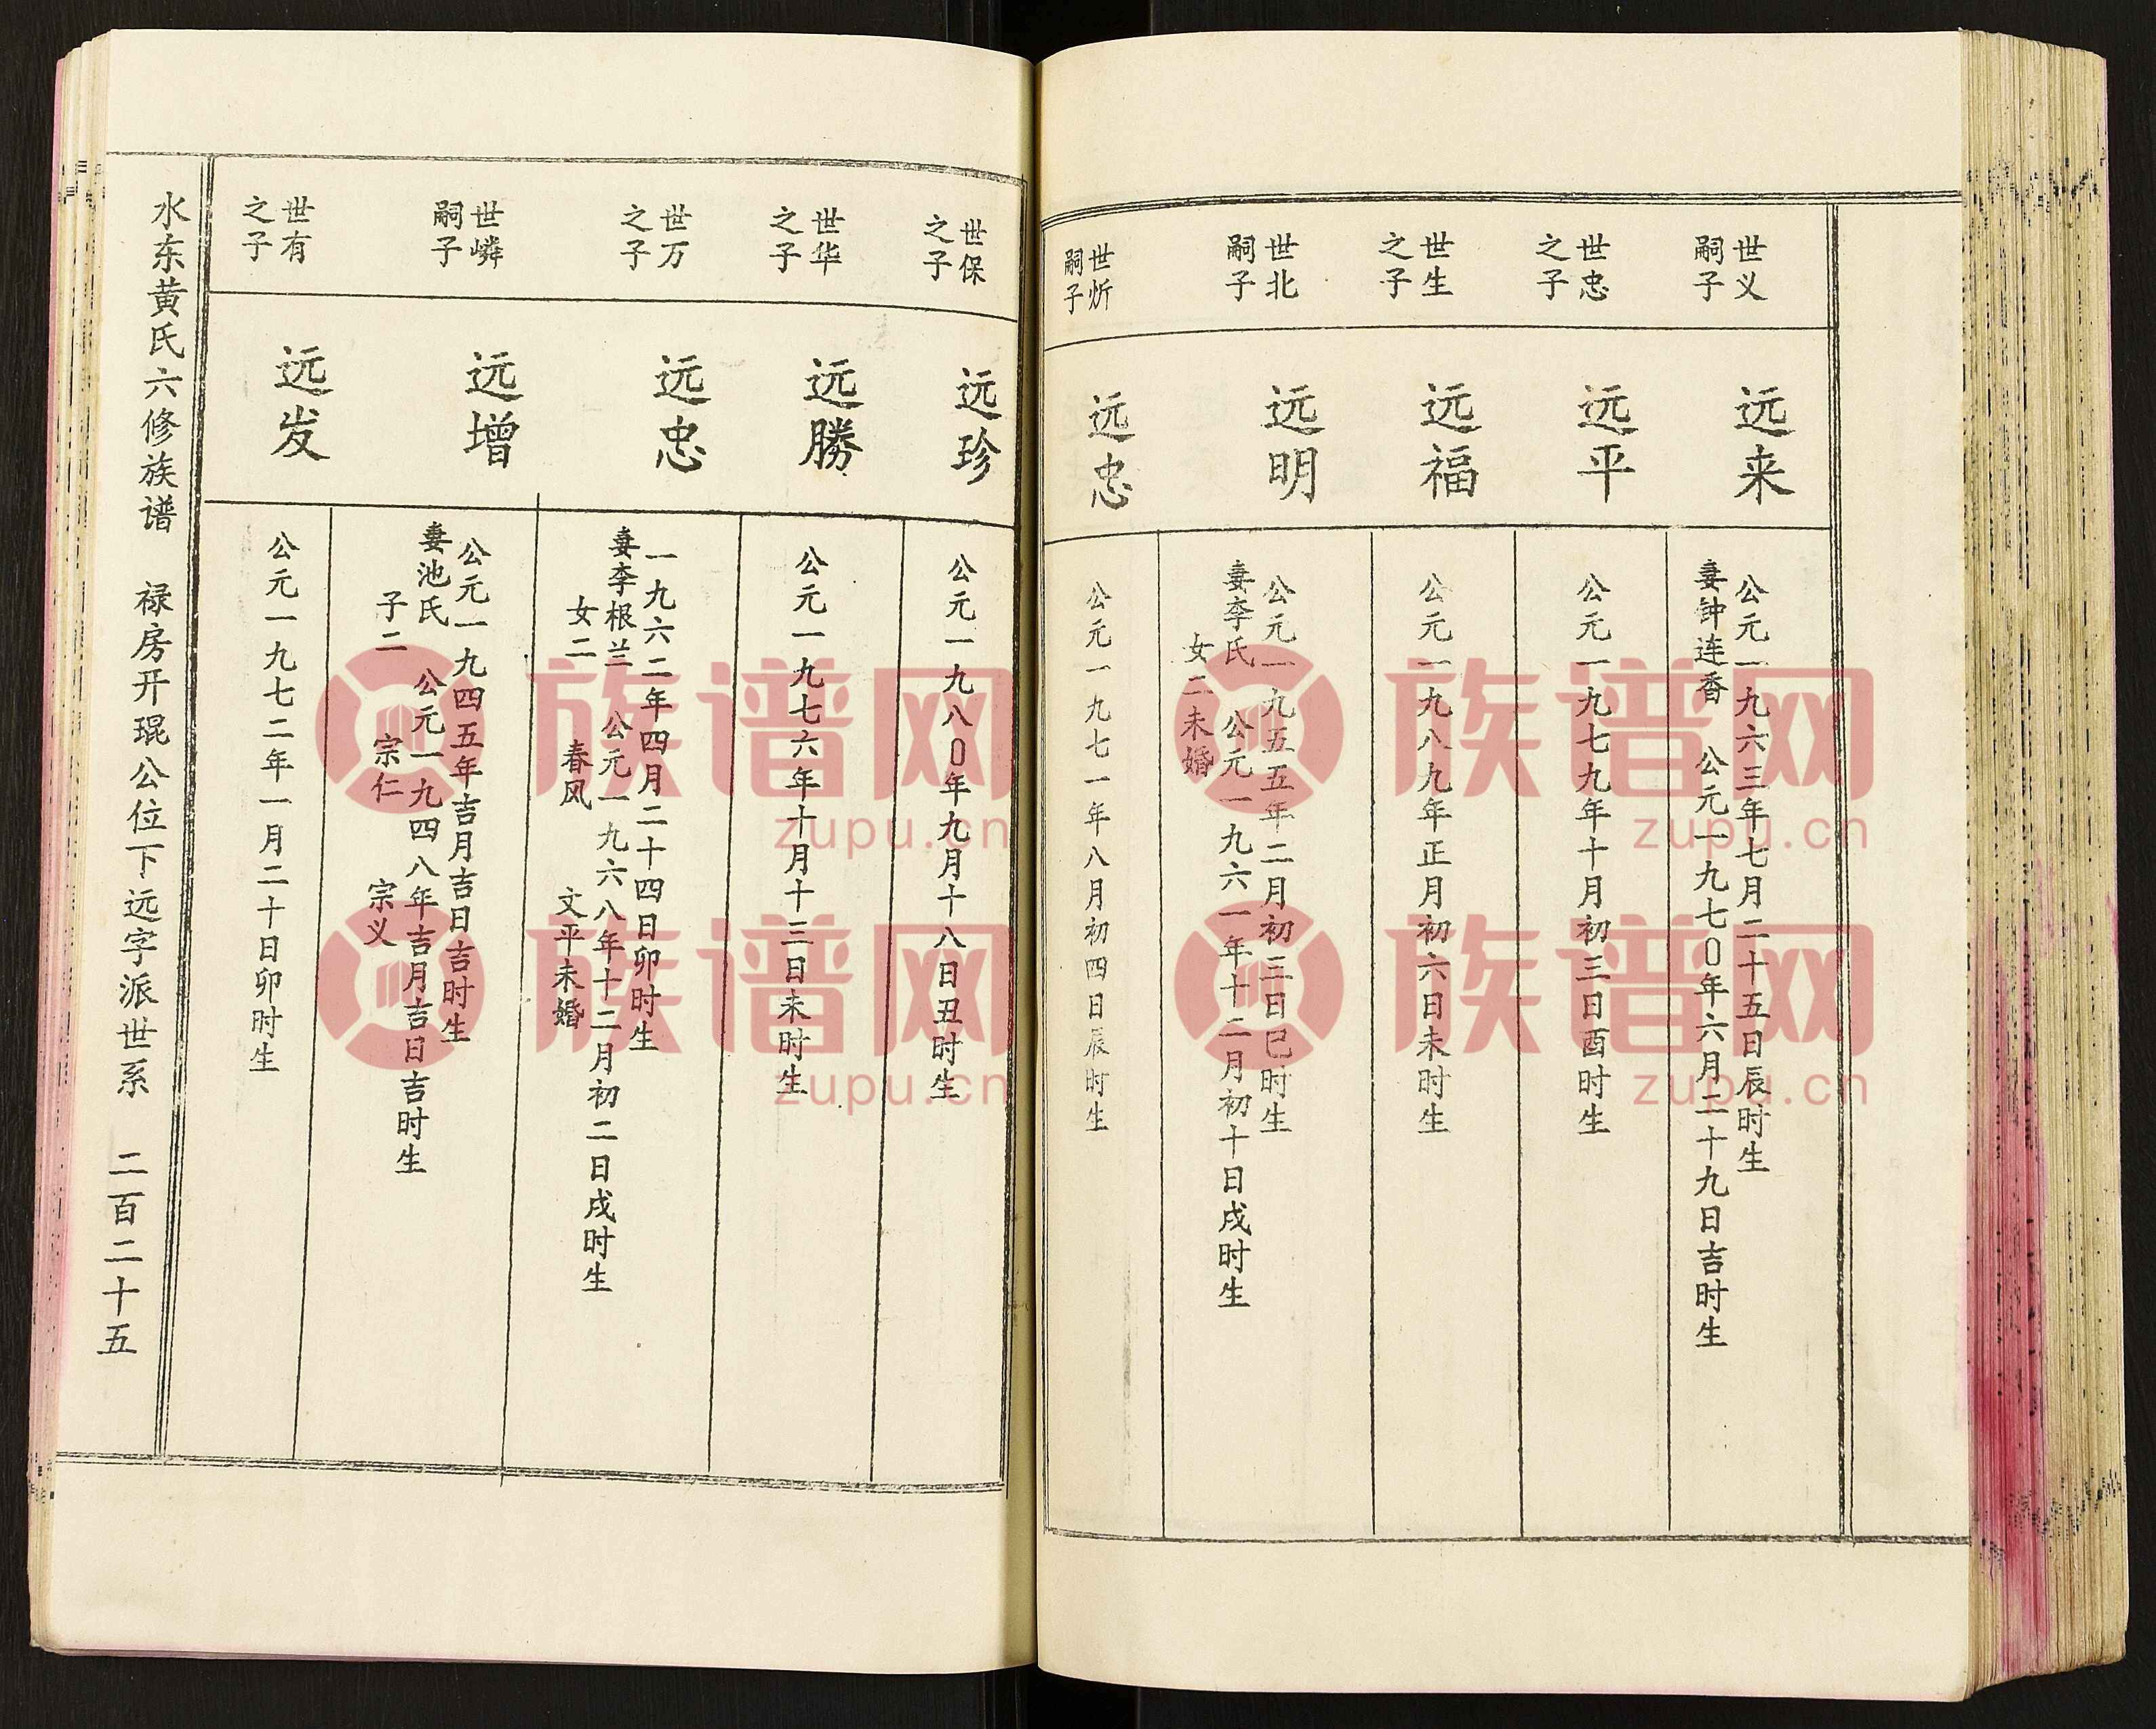 世义
嗣子
远来
公元一九六三年七月二十五日辰时生
妻钟连香 公元一九七〇年六月二十九日吉时生
世忠
之子
远平
公元一九七九年十月初三日酉时生
世生
之子
远福
公元一九八九年正月初六日未时生
世北
嗣子
远明
公元一九五五年二月初三日巳时生
妻李氏 公元一九六一年十二月初十日戌时生
女二未婚
世炘
嗣子
远忠
公元一九七一年八月初四日辰时生
世保
之子
远珍
公元一九八〇年九月十八日丑时生
世华
之子
远勝
公元一九七六年十月十三日未时生
世万
之子
远忠
一九六二年四月二十四日卯时生
妻李根兰 公元一九六八年十二月初二日戌时生
女二 春风 文平未婚
世嶙
嗣子
远增
公元一九四五年吉月吉日吉时生
妻池氏 公元一九四八年吉月吉日吉时生
子二 宗仁 宗义
世有
之子
远发
公元一九七二年一月二十日卯时生
水东黄氏六修族谱 禄房开琨公位下远字派世系 二百二十五
族谱网
zupu.cn
族谱网
zupu.cn
族谱网
zupu.cn
族谱网
zupu.cn